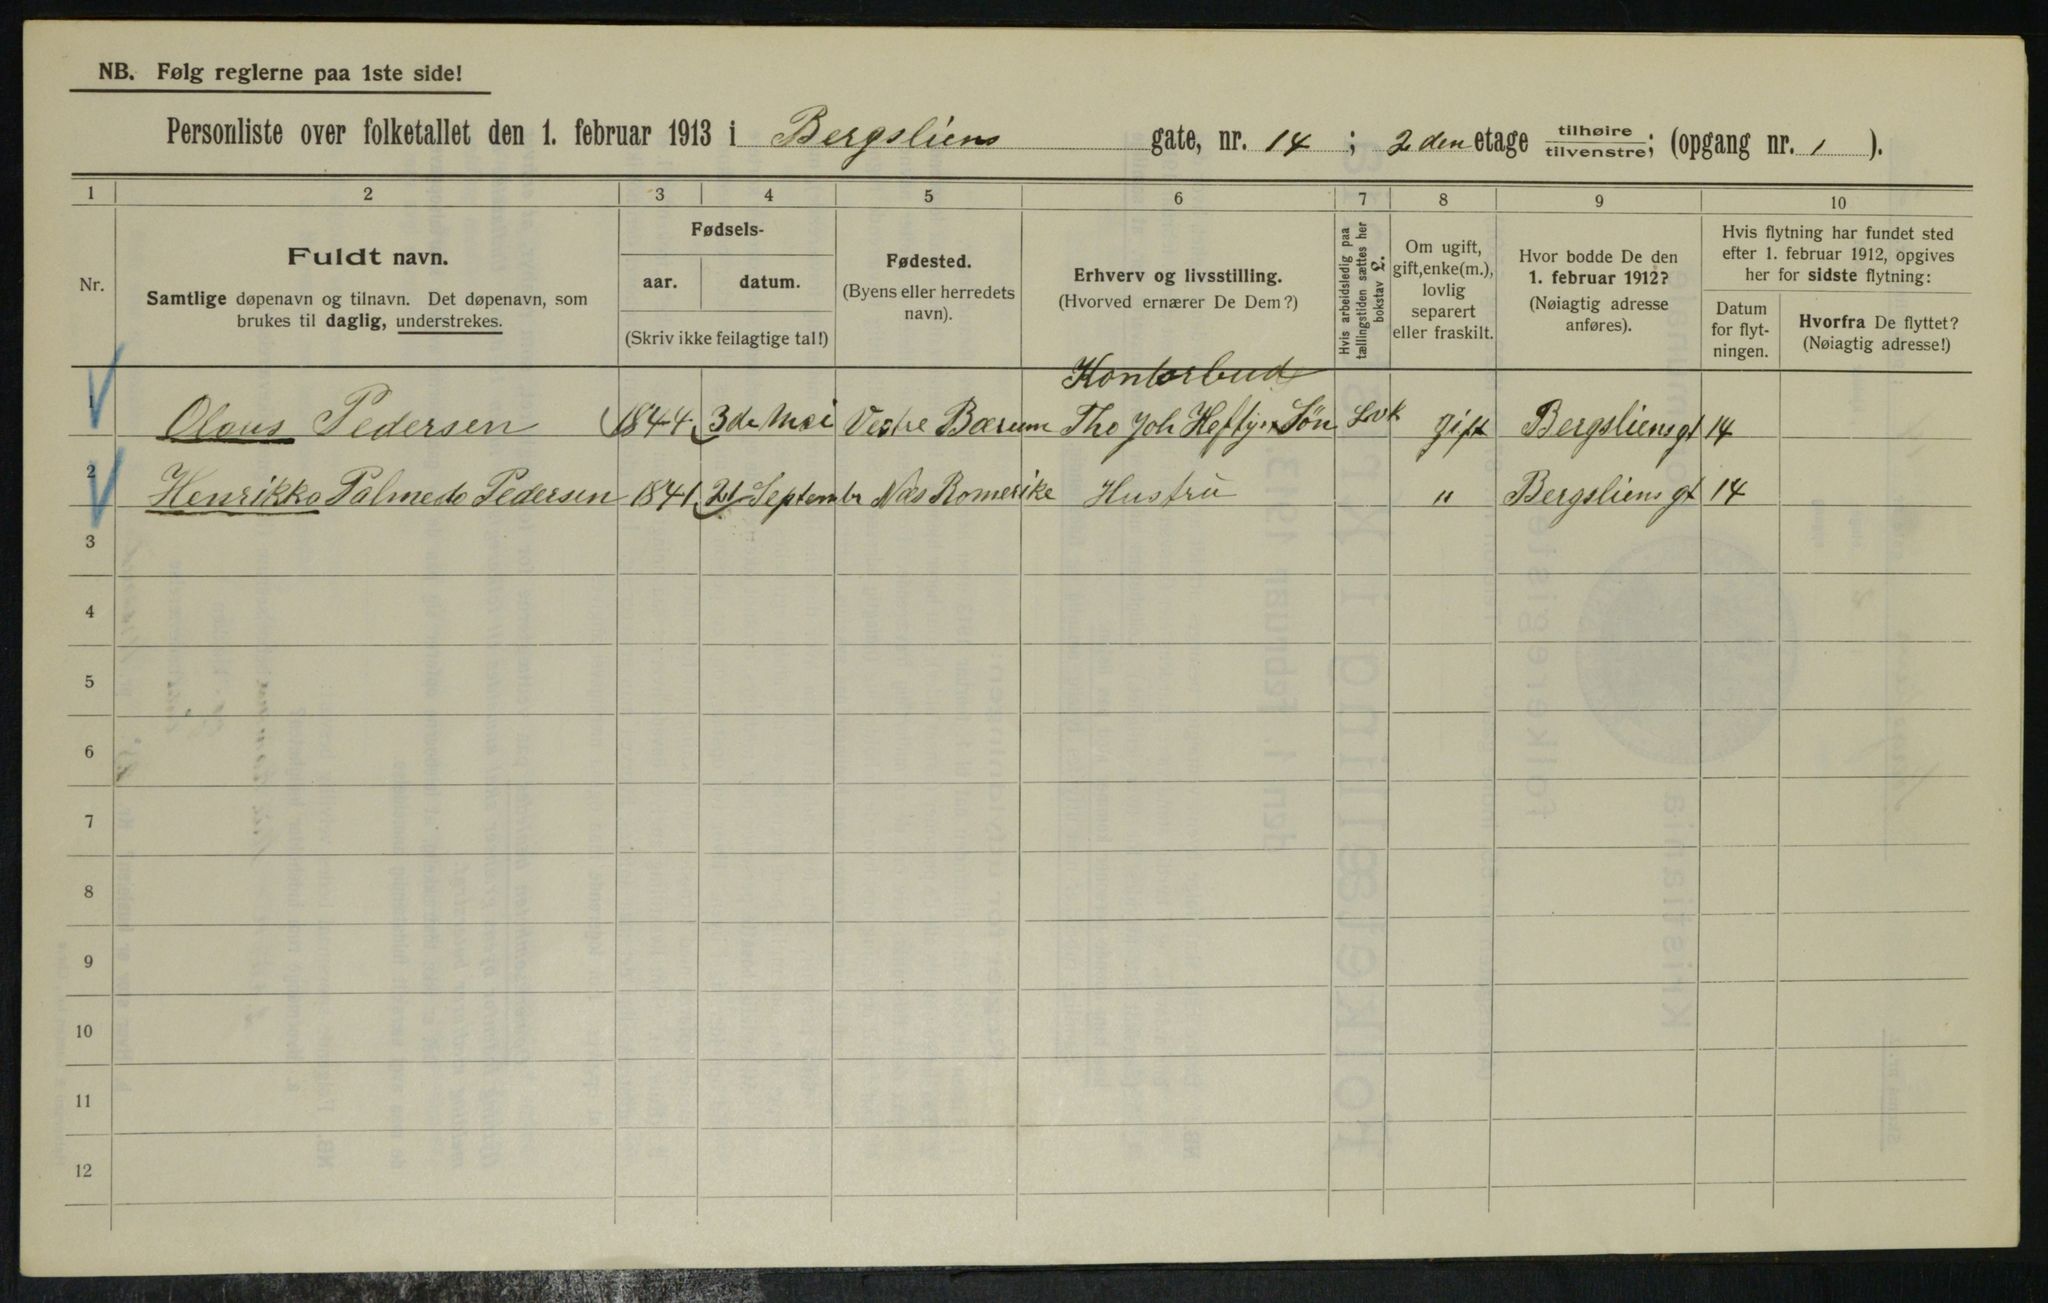 NB. Følg reglerne paa 1ste side!
Personliste over folketallet den 1. februar 1913 i Bergsliens gate, nr. 14 ; 2den etage tilhøire tilvenstre; (opgang nr. 1 ).
1 2 3 4 5 6 7 8 9 10
Nr.
Fuldt navn.
Samtlige døpenavn og tilnavn. Det døpenavn, som
brukes til daglig, understrekes.
Fødsels-
aar. datum.
(Skriv ikke feilagtige tal!)
Fødested.
(Byens eller herredets
navn).
Erhverv og livsstilling.
(Hvorved ernærer De Dem?)
Hvis arbeidsledig paa
tællingstiden sættes her
bokstav L.
Om ugift,
gift, enke(m.),
lovlig
separert
eller fraskilt.
Hvor bodde De den
1. februar 1912?
(Nøiagtig adresse
anføres).
Hvis flytning har fundet sted
efter 1. februar 1912, opgives
her for sidste flytning:
Datum
for flyt-
ningen.
Hvorfra De flyttet?
(Nøiagtig adresse!)
Kontorbud
1 Olaus Pedersen 1844 3de Mai Vestre Bærum Tho Joh Heftye Søn gift Bergsliens gt 14
2 Henrikka Palmeda Pedersen 1841 21 Septembr Næs Romerike Hustru " Bergsliens gt 14
3
4
5
6
7
8
9
10
11
12